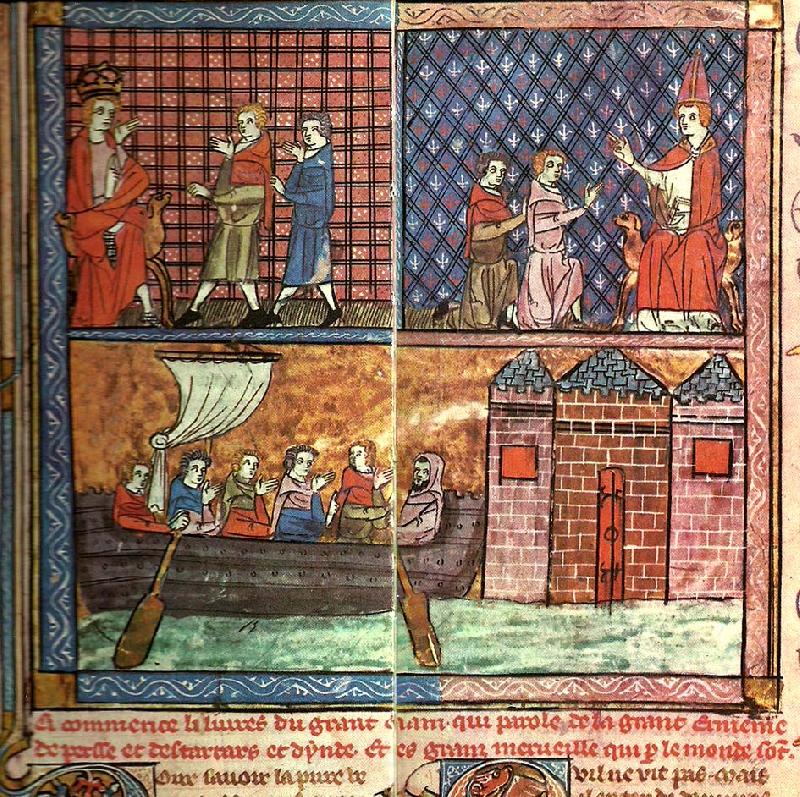 Ci commence li liures du graunt caam qui parole de la graunt ermenie
de persse et des tartars et dynde. Et des granz merueille qui p le monde sont.
Our sauoir la pure ve
vil ne vit pas. Mais